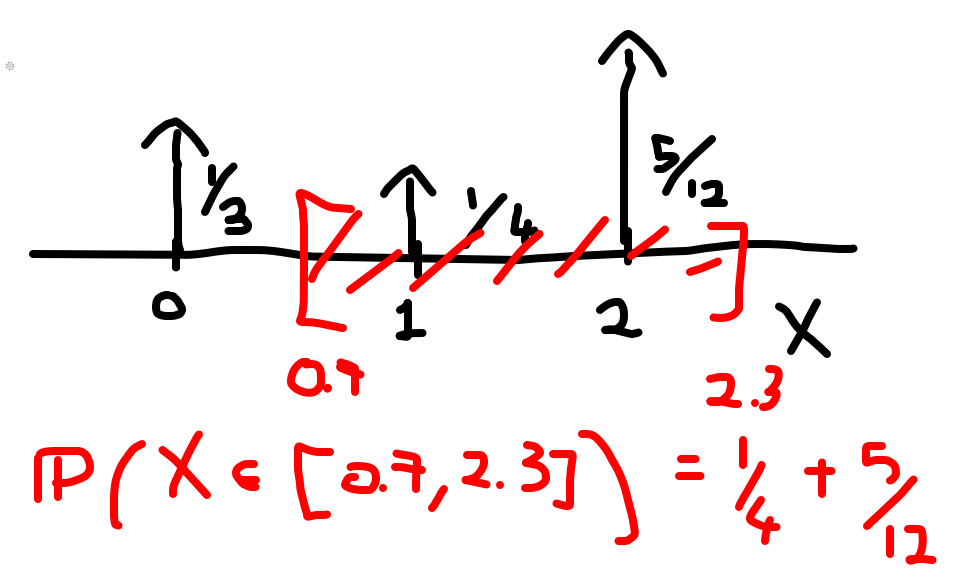 1/3
1/4
5/12
0 1 2 X
0.7 2.3
P(X ∈ [0.7, 2.3]) = 1/4 + 5/12